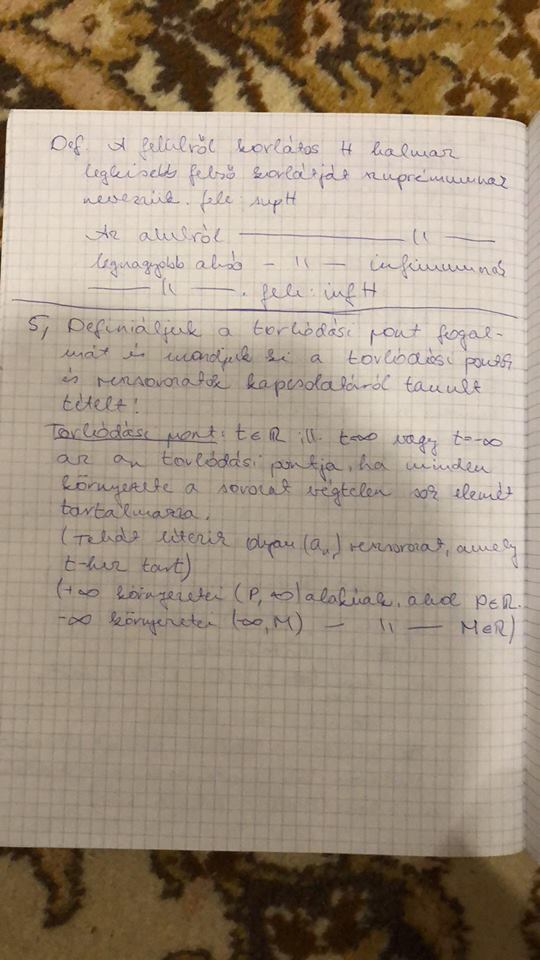 Def. A felülről korlátos H halmaz
legkisebb felső korlátját szuprémumnak
nevezzük. jele: sup H
Az alulról ——— 〃 ———
legnagyobb alsó — 〃 — infimumnak
——— 〃 ———. jele: inf H
5, Definiáljuk a torlódási pont fogal-
mát és mondjuk ki a torlódási pontok
és részsorozatok kapcsolatáról tanult
tételt!
Torlódási pont: t∈ℝ ill. t=∞ vagy t=-∞
az an torlódási pontja, ha minden
környezete a sorozat végtelen sok elemét
tartalmazza.
(Tehát létezik olyan (an) részsorozat, amely
t-hez tart)
(+∞ környezetei (P, ∞) alakúak, ahol P∈ℝ.
-∞ környezetei (-∞, M) — 〃 — M∈ℝ)